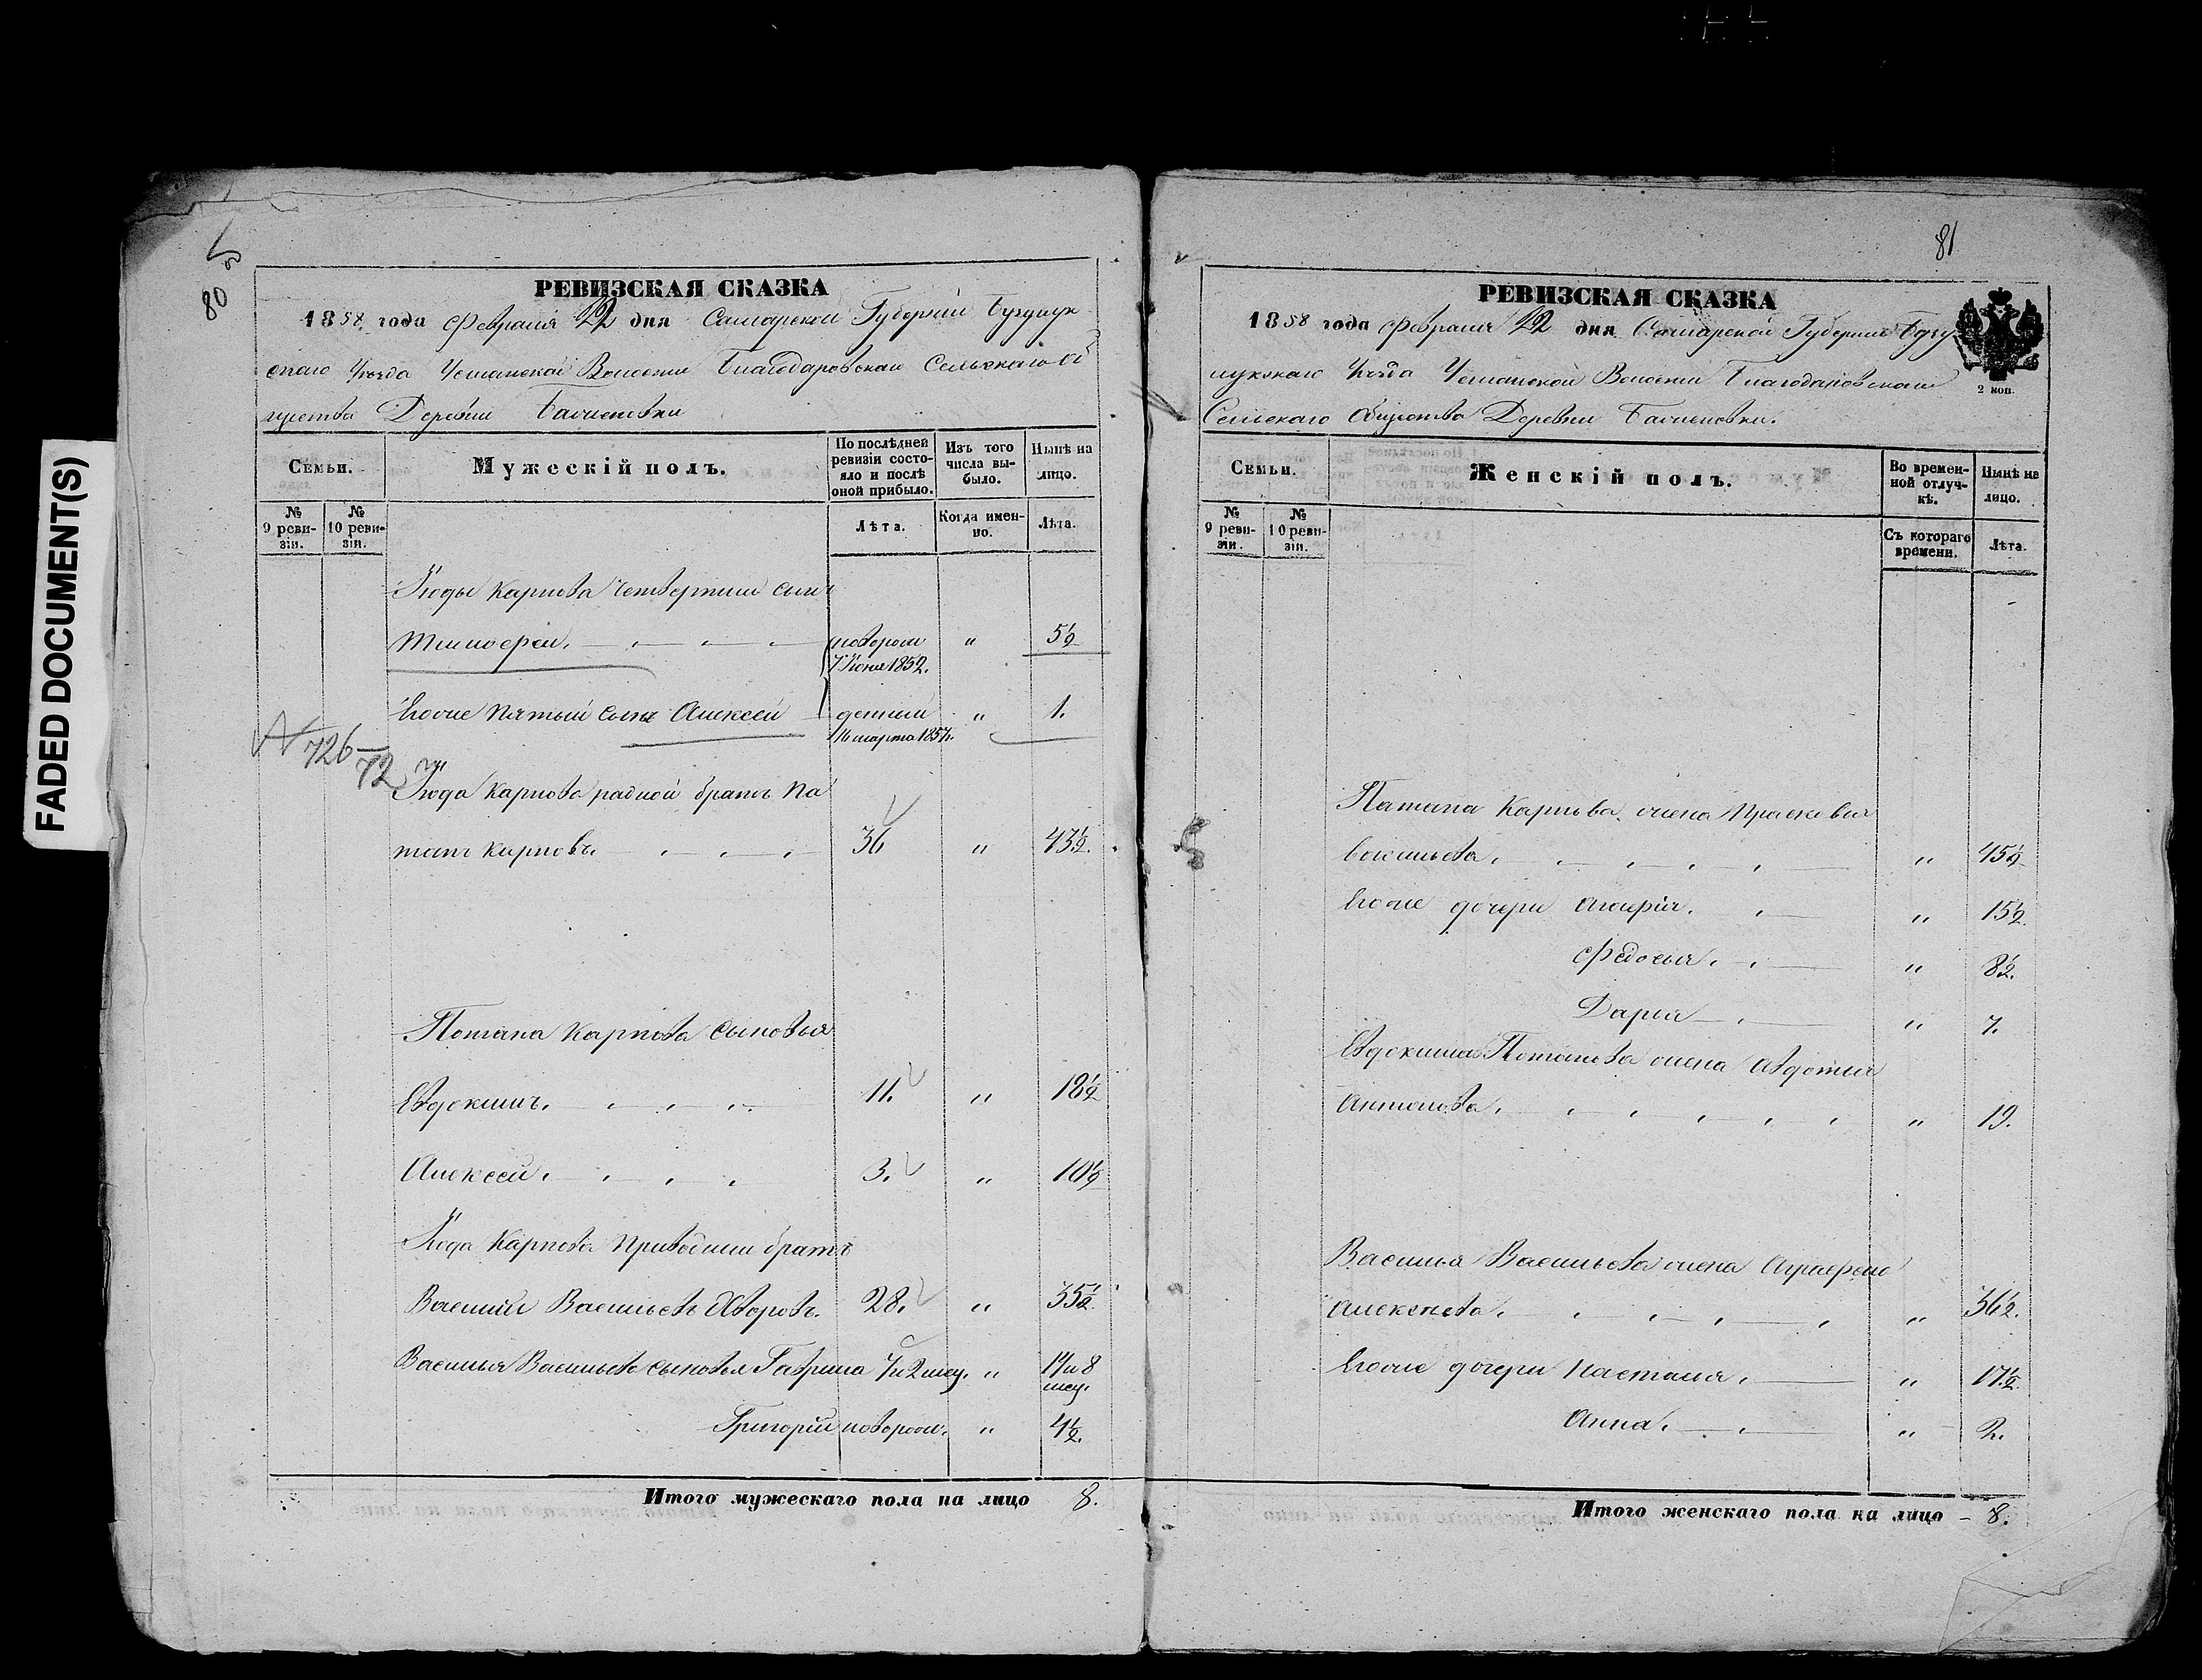 FADED DOCUMENT(S)
80
РЕВИЗСКАЯ СКАЗКА
1858 года Февраля 22 дня Самарской Губернии Бузулук
скаго Уезда Волости Благодаровскаго Сельскаго Об
щества Деревни
Семьи.
Мужескій полъ.
По послѣдней ревизіи состояло и послѣ оной прибыло.
Изъ того числа выбыло.
Нынѣ на лицо.
№ 9 ревизіи.
№ 10 ревизіи.
Лѣта.
Когда именно.
Лѣта.
Іюды Карпова четвертый сынъ
Тимофей. новорож " 5½
7 Іюня 1852.
Его же пятый сынъ Алексей " 1.
16 марта 1857.
№ 726
72
Іюда Карпова родной братъ По
тапъ Карповъ. 36 " 43½.
Потапа Карпова сыновья
Евдокимъ. 11. " 18½
Алексей. 3. " 10½
Іюда Карпова братъ
Василий Васильевъ 28. " 35½.
Василья Васильева сыновья Гаврила 7 и 2 мец. " 14 и 8
мец.
Григорій новорож. " 4½.
Итого мужескаго пола на лицо 8.
81
РЕВИЗСКАЯ СКАЗКА
1858 года Февраля 22 дня Самарской Губернии Бузу
лукскаго Уезда Волости Благодаровскаго
Сельскаго Общества Деревни
2 коп.
Семьи.
Женскій полъ.
Во временной отлучкѣ.
Нынѣ на лицо.
№ 9 ревизіи.
№ 10 ревизіи.
Съ котораго времени.
Лѣта.
Потапа Карпова жена Прасковья
Васильева. " 45½
Его же дочери " 15½.
Федосья. " 8½.
Дарья " 7.
Евдокима Потапова жена Авдотья
Антонова. " 19.
Василья Васильева жена Аграфена
Алексеева. " 36½.
Его же дочери Настасья. " 17½.
Анна. " 2.
Итого женскаго пола на лицо 8.